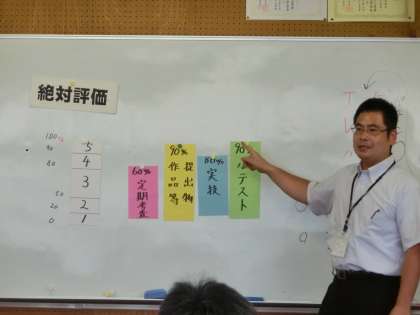 絶対評価
100%
90
80
50
20
0
5
4
3
2
1
60%
定期考査
90%
提出物
作品等
80%
実技
90%
小テスト